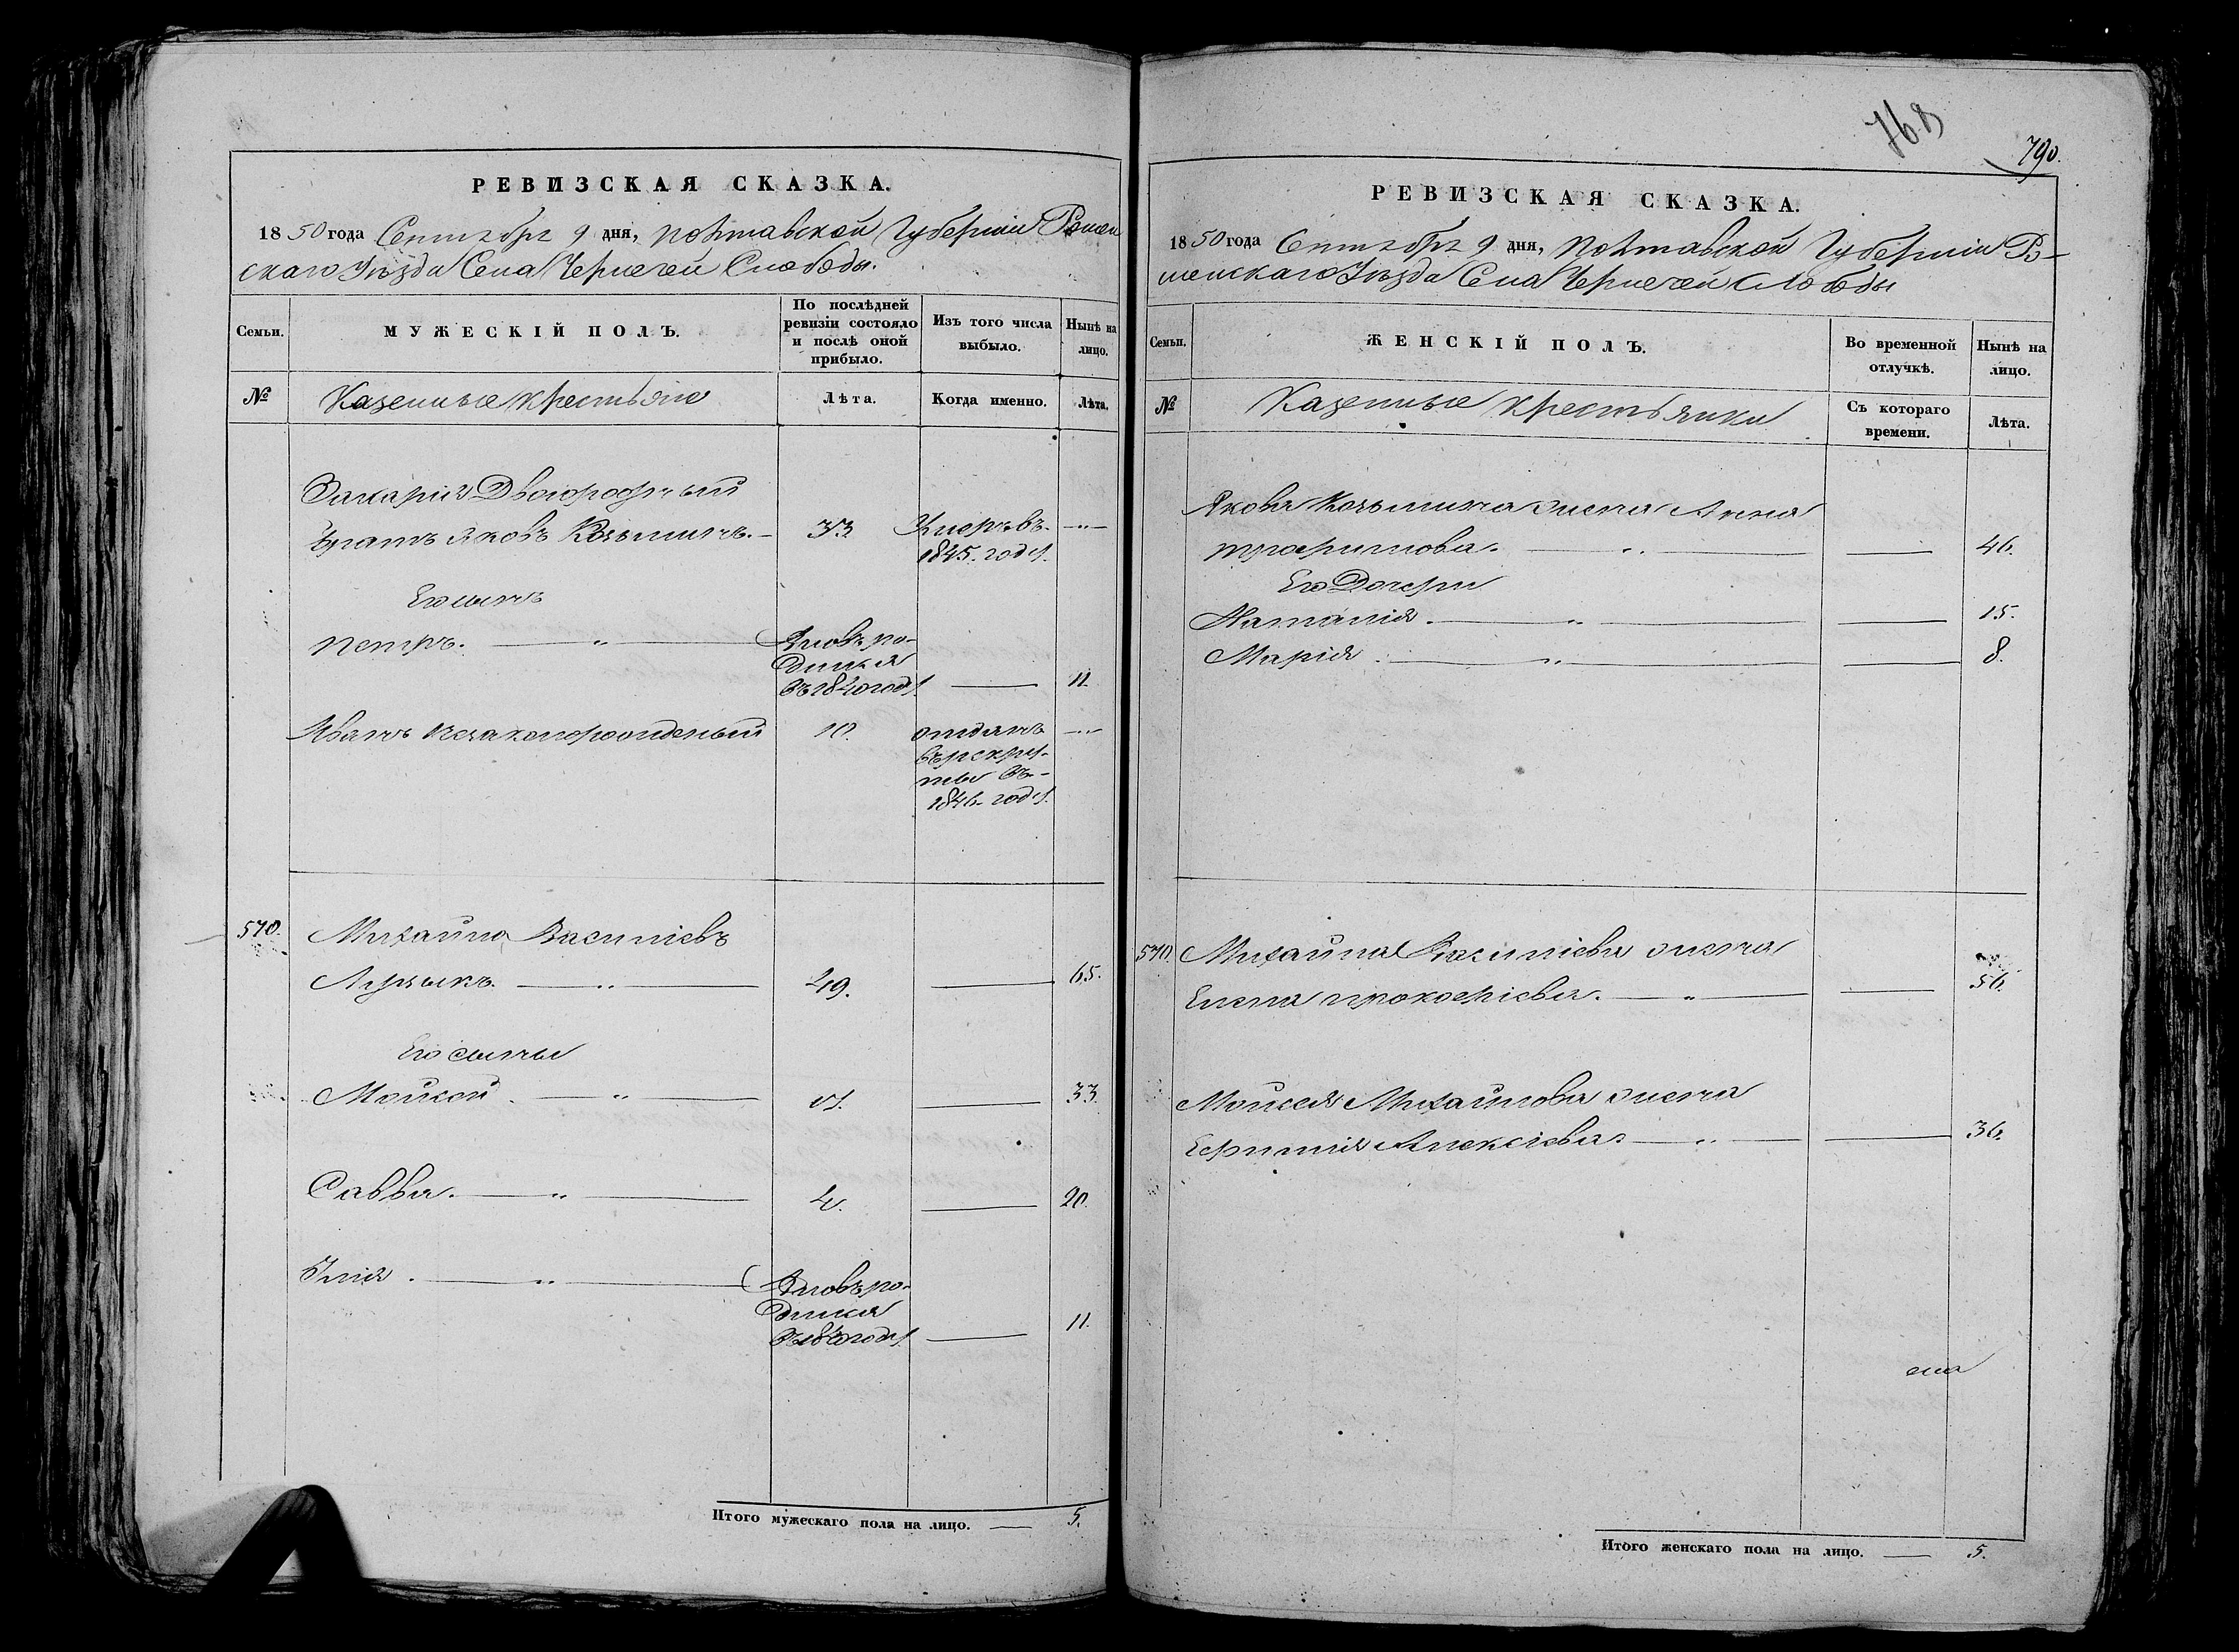 РЕВИЗСКАЯ СКАЗКА.
1850 года Сентября 9 дня, Полтавской Губернiи Ромен
скаго Уѣзда Села Чернечей Слободы.
Семьи.
МУЖЕСКIЙ ПОЛЪ.
По послѣдней
ревизіи состояло
и послѣ оной
прибыло.
Изъ того числа
выбыло.
Нынѣ на
лицо.
№
Казенные крестьяне
Лѣта.
Когда именно.
Лѣта.
Захарія Двоюродный
братъ Яковъ Козьминъ.
33
Умеръ въ
1845. году.
Его сынъ
Петръ.
Вновь ро-
дился
въ 1840 году
11.
Иванъ незаконорожденый
10.
отданъ
въ рекру-
ты въ
1846. году.
570.
Михайло Василіевъ
49.
65.
Его сыны
Мойсей
17.
33.
Савва.
4.
20.
Илія.
Вновь ро-
дился
въ 1840 году
11.
Итого мужескаго пола на лицо. 5.
768
790.
РЕВИЗСКАЯ СКАЗКА.
1850 года Сентября 9 дня, Полтавской Губерніи Ро-
менскаго Уѣзда Села Чернечей Слободы
Семьи.
ЖЕНСКІЙ ПОЛЪ.
Во временной
отлучкѣ.
Нынѣ на
лицо.
№
Казенные крестьянки
Съ котораго
времени.
Лѣта.
Якова Козьмина жена Анна
Трофимова.
46.
Его Дочери
Наталія.
15.
Марія.
8.
570.
Михайла Василіева жена
Елена Прокофіева.
56.
Мойсея Михайлова жена
Ефимія Алексіева
36.
Итого женскаго пола на лицо. 5.